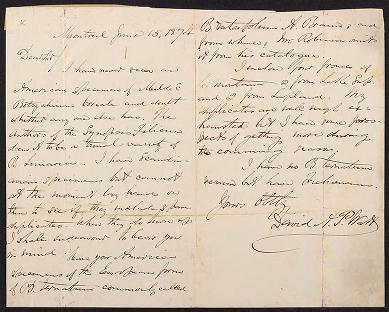 Montreal June 13, 1874
Dear Sir/
I have never seen an
American specimen of
Botrychium boreale and doubt
whether any one else has. The
authors of the Synopsis Filicum
deem it to be a small variety of
B. lunaria. I have scandi-
navian specimens but cannot
at the moment lay hands on
them to see if they include
duplicates. When they do turn up
I shall endeavour to bear you
in mind. Have you American
specimens of the European form
of B. ternatum commonly called
B. A. Braun; and
from whence? Mr Robinson omits
it from his catalogue.
I enclose four fronds of
from Lake
and from Lapland. My
duplicates are well nigh ex-
hausted but I have some pros-
pects of getting more during
the coming season.
I have no B. ternatum
verum but have
Yours
David A. P. Watt